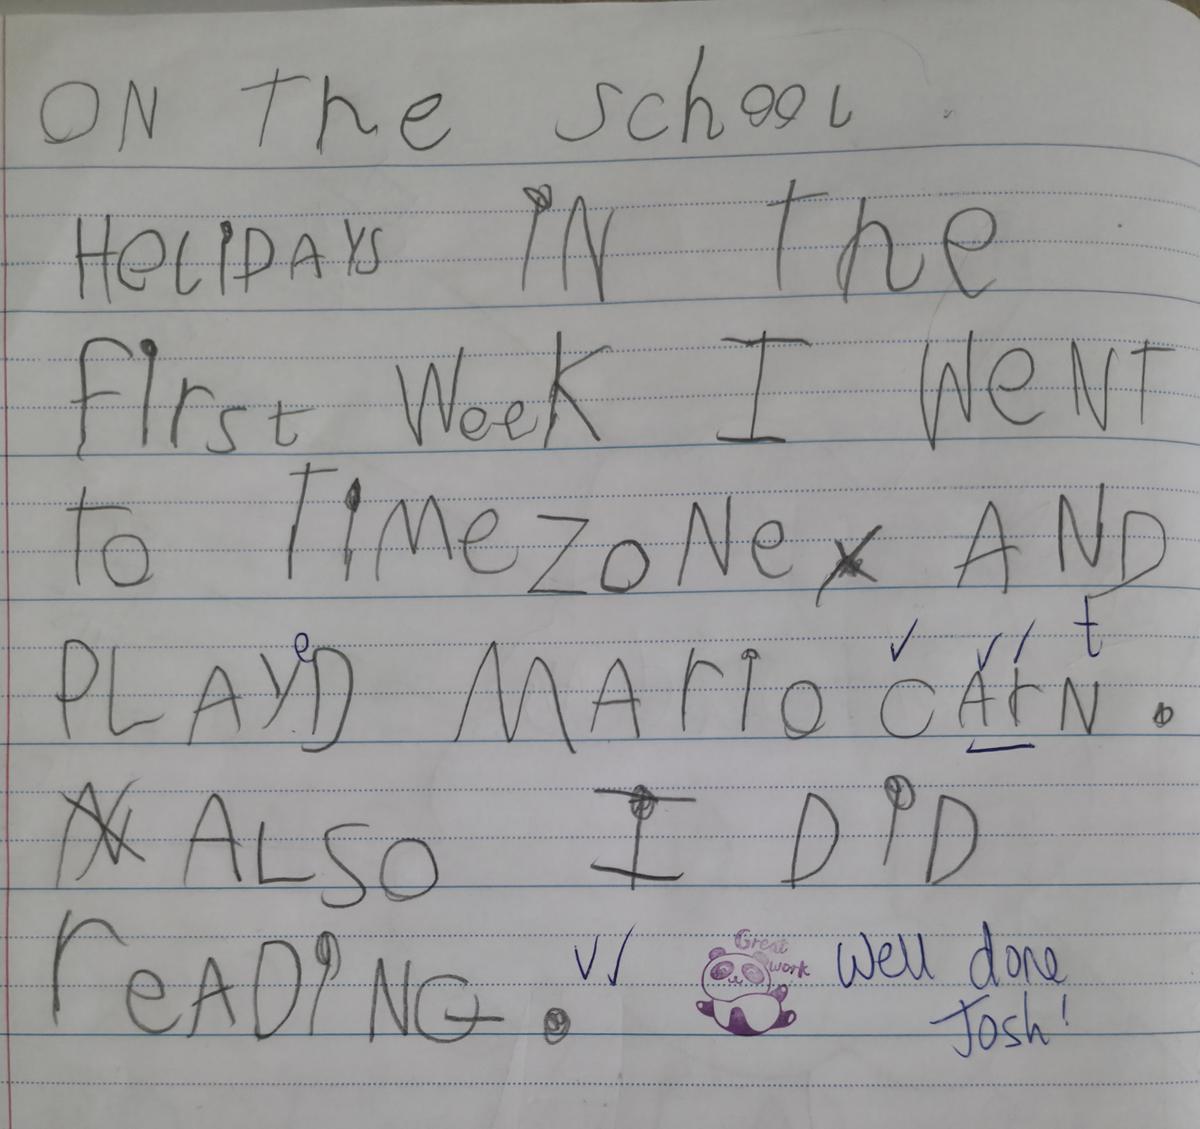 ON The school
HeLiDAYS iN The
First Week I WeNT
to TiMeZoNe AND
PLAYeD MArio CArN t.
ALSO I DiD
reADiNG.
Great work
Well done
Josh!